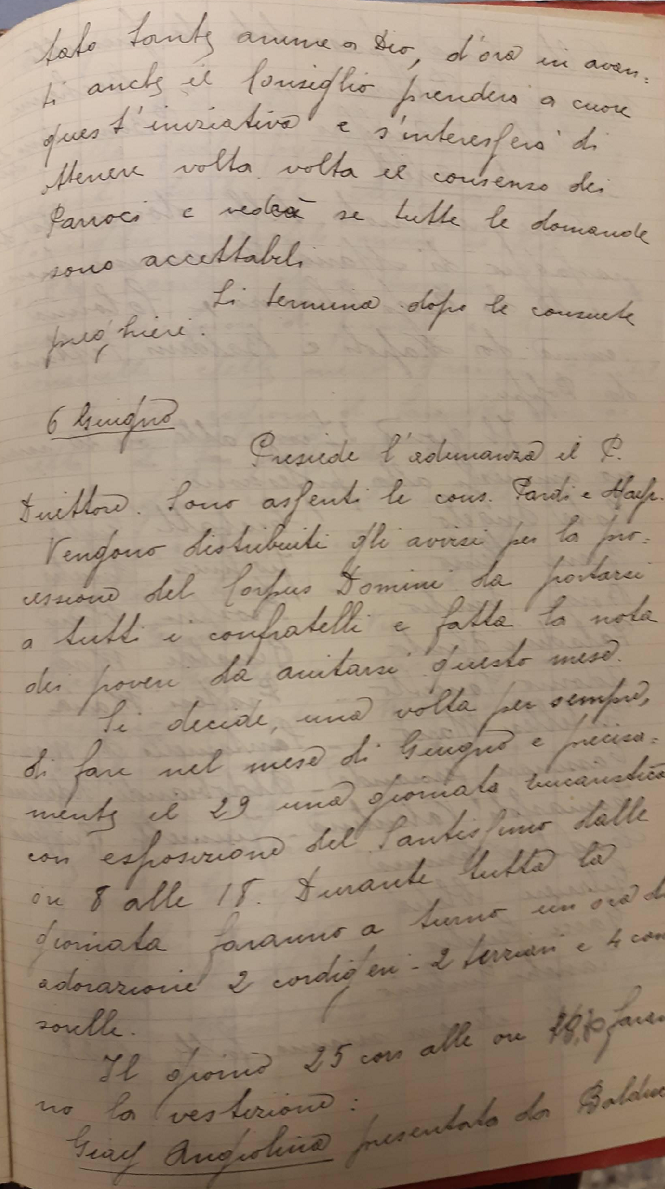 tato tante anime a Dio, d'ora in avan=
ti anche il Consiglio prenderà a cuore
quest'iniziativa e s'interesserà di
ottenere volta volta il consenso dei
Parroci e vedrà se tutte le domande
sono accettabili
Si termina dopo le consuete
preghiere.
6 Giugno
Presiede l'adunanza il P.
Direttore. Sono assenti le cons. Pardi e
Vengono distribuiti gli avvisi per la pro=
cessione del Corpus Domini da portarsi
a tutti i confratelli e fatta la nota
dei poveri da aiutarsi questo mese.
Si decide, una volta per sempre,
di fare nel mese di Giugno e precisa=
mente il 29 una giornata eucaristica
con esposizione del Santissimo dalle
ore 8 alle 18. Durante tutta la
giornata faranno a turno un'ora di
adorazione 2 cordigeri - 2 terziari e 4 con
sorelle.
Il giorno 25 con alle ore faran
no la vestizione:
Angiolina presentata da